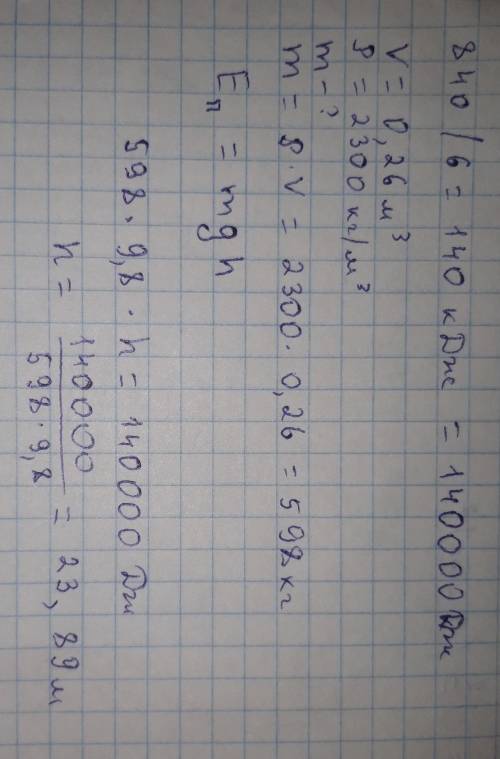 840 / 6 = 140 кДж = 140000 Дж
V = 0,26 м³
ρ = 2300 кг/м³
m - ?
m = ρ · V = 2300 · 0,26 = 598 кг
Eп = mgh
598 · 9,8 · h = 140000 Дж
h = 140000 / 598 · 9,8 = 23,89 м